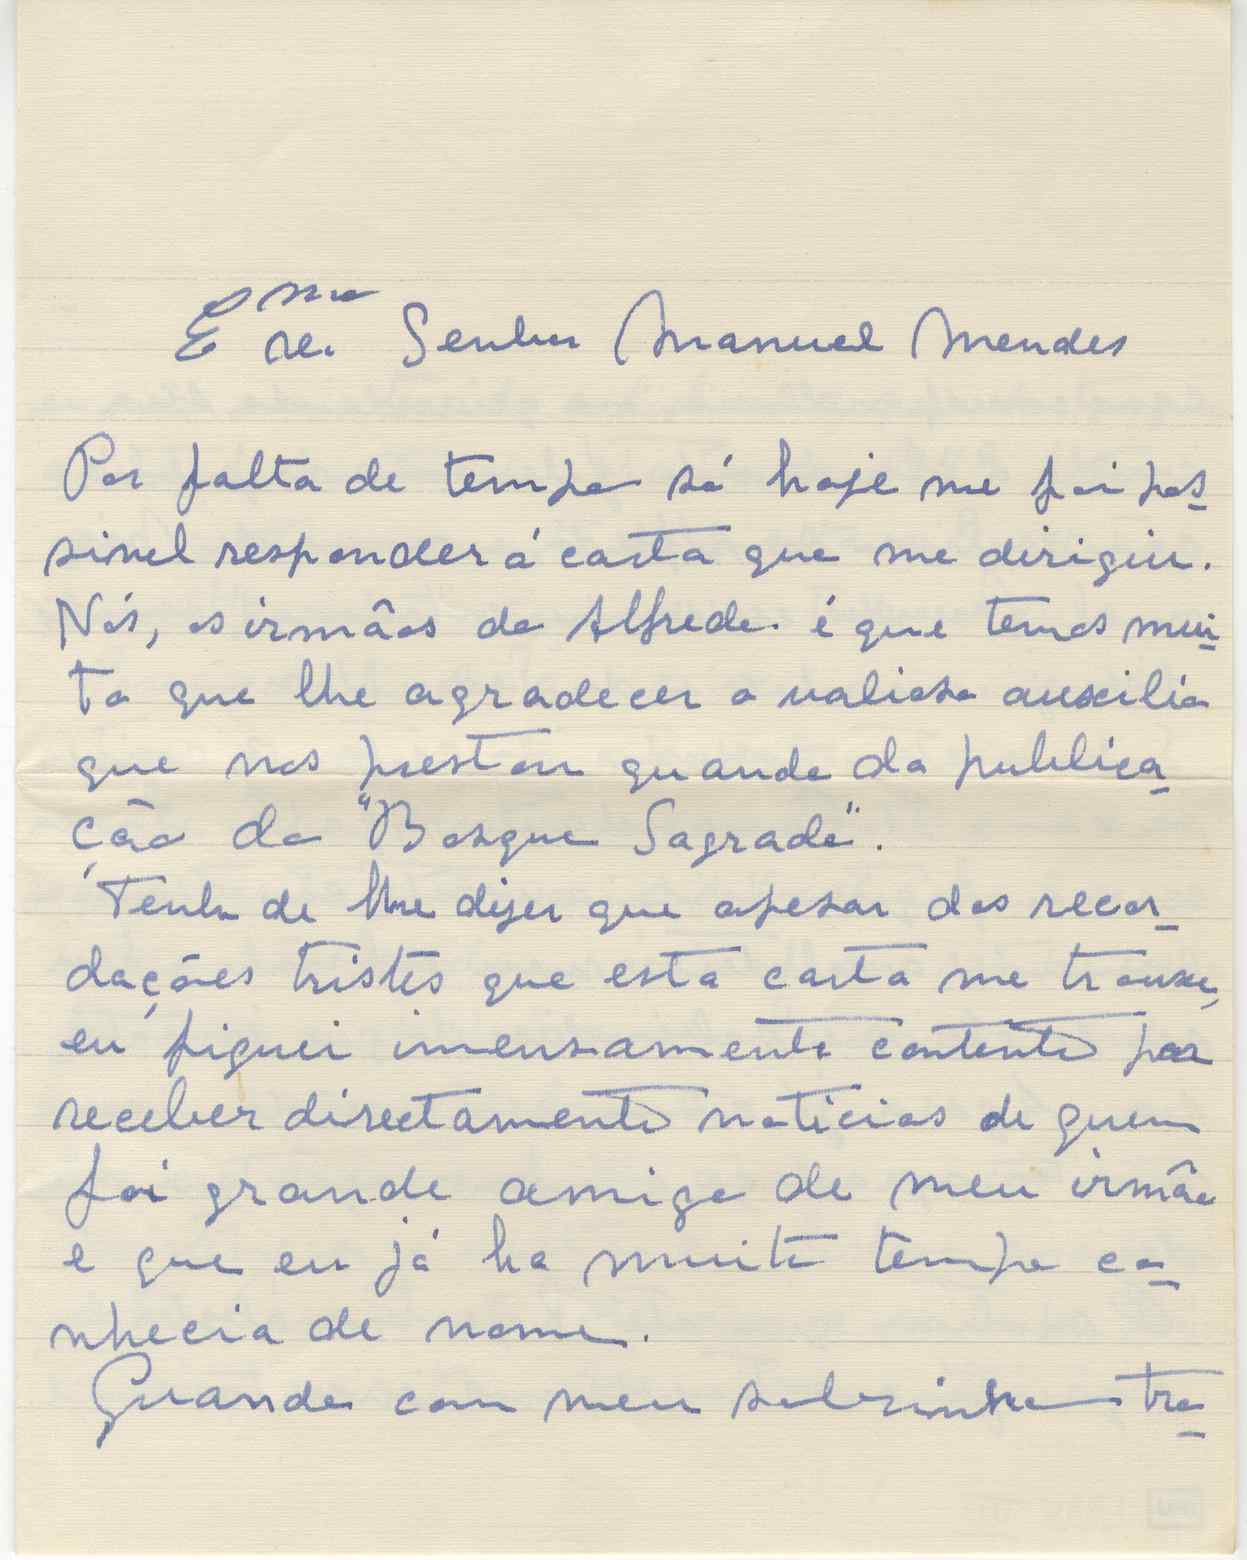 Exmo Senhor Manuel Mendes
Por falta de tempo só hoje me foi pos-
sivel responder á carta que me dirigiu.
Nós, os irmãos do Alfredo. é que temos mui-
to que lhe agradecer o valioso auxilio
que nos prestou quando da publica-
ção do "Bosque Sagrado".
Tenho de lhe dizer que apesar das recor-
dações tristes que esta carta me trouxe,
eu fiquei imensamente contente por
receber directamente noticias de quem
foi grande amigo de meu irmão
e que eu já ha muito tempo co-
nhecia de nome.
Quando com meu sobrinho tro-